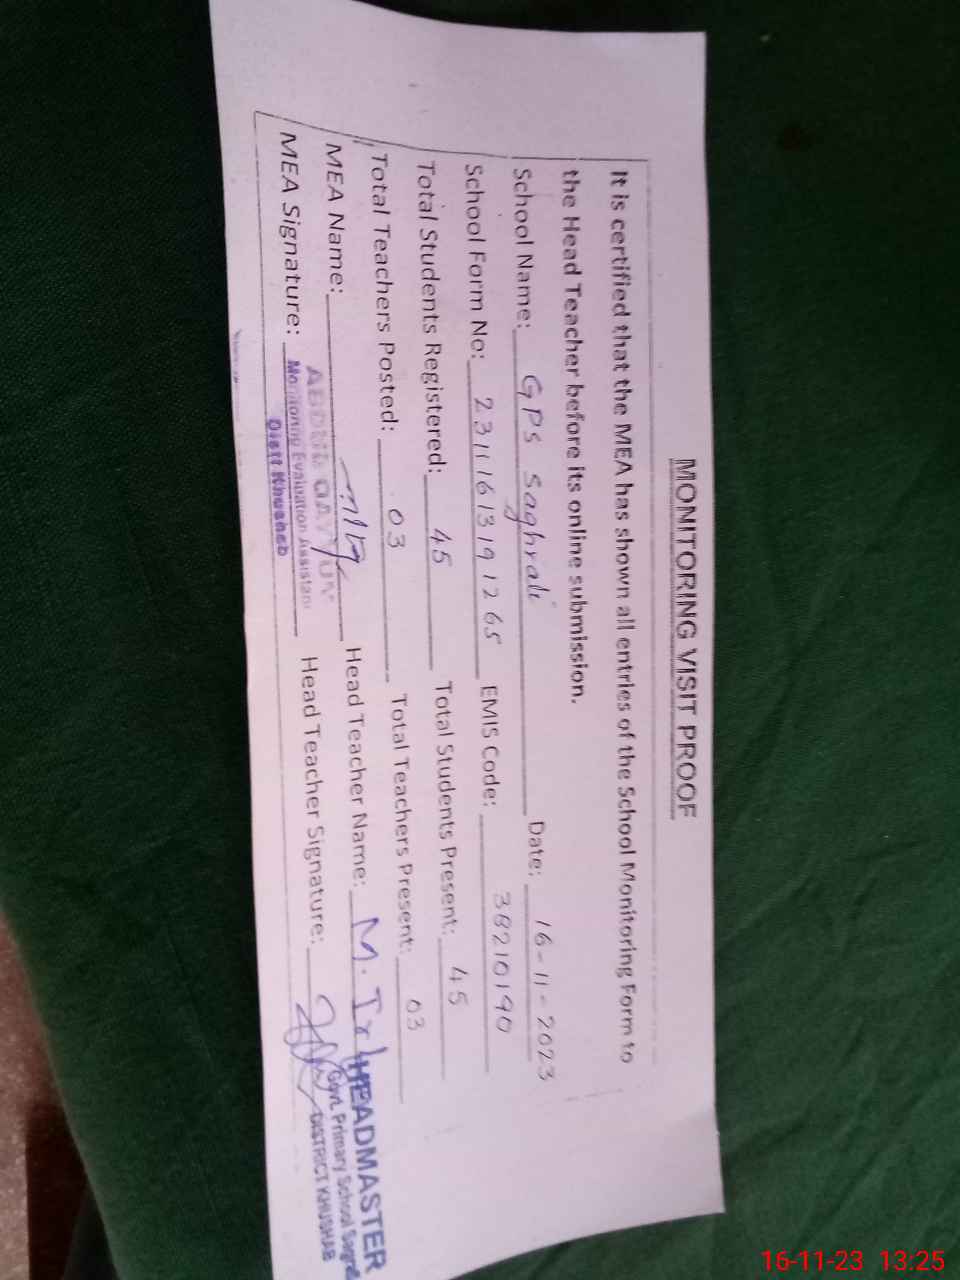 MONITORING VISIT PROOF
It is certified that the MEA has shown all entries of the School Monitoring Form to
the Head Teacher before its online submission.
School Name: GPS Saghrali Date: 16-11-2023
School Form No: 23111613191265 EMIS Code: 38210190
Total Students Registered: 45 Total Students Present: 45
Total Teachers Posted: 03 Total Teachers Present: 03
MEA Name: Head Teacher Name: M.
MEA Signature: Head Teacher Signature:
ABDUL QAYYUM
Monitoring Evaluation Assistant
Distt Khushab
HEADMASTER
Govt. Primary School
DISTRICT KHUSHAB
16-11-23 13:25